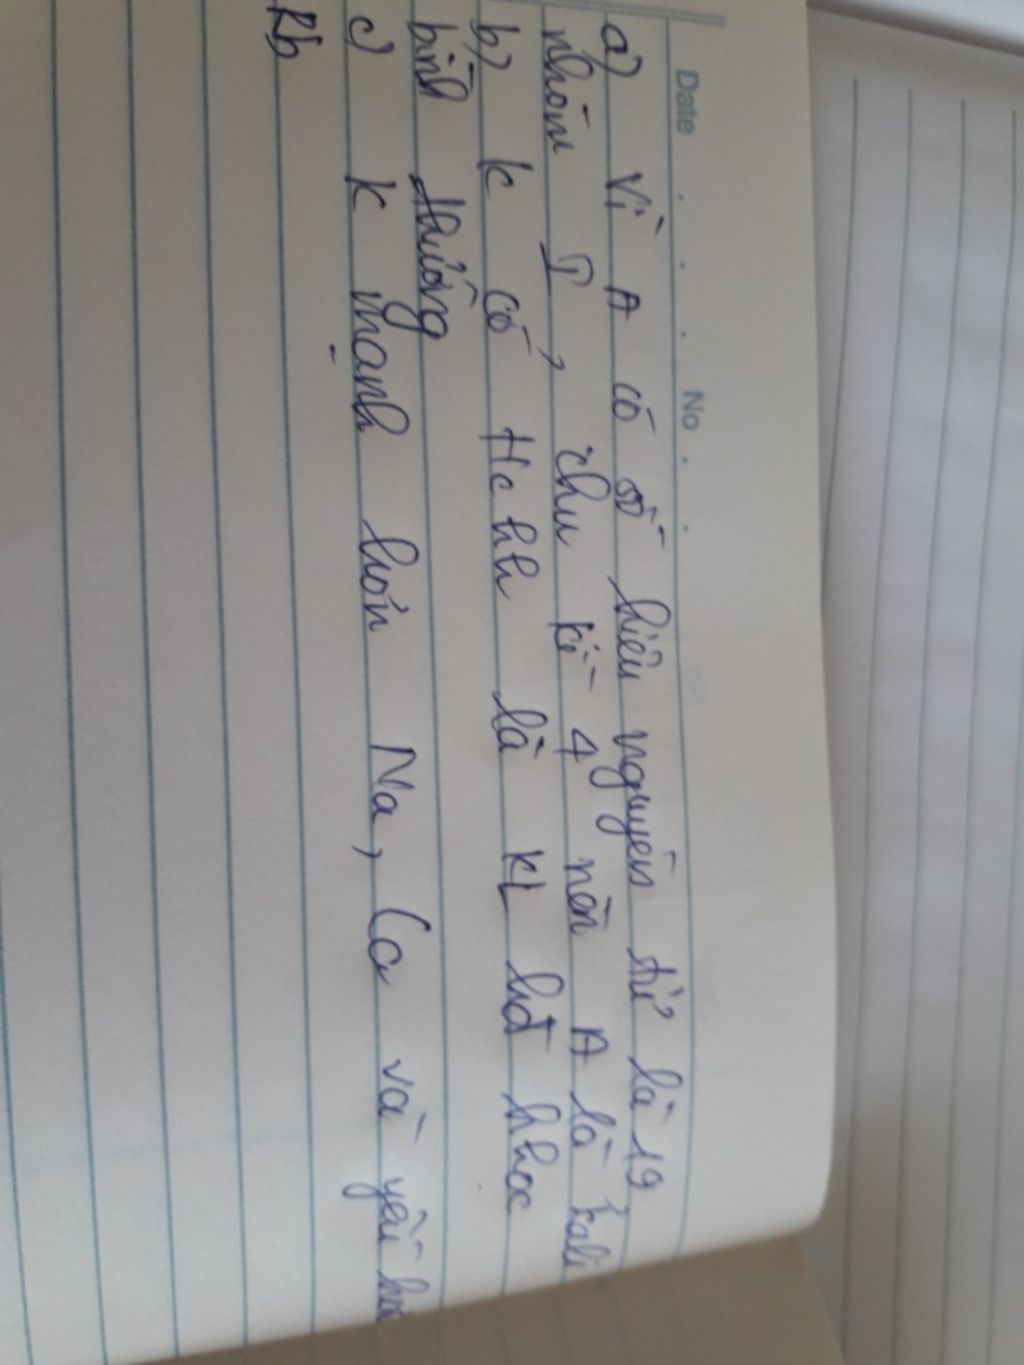 Date . . . No . .
a) Vì A có số hiệu nguyên tử là 19
nhóm I, chu kì 4 nên A là kali
b) K có tchh là KL hđ hhọc
bình thường
c) K mạnh hơn Na, Ca và yếu hơ
Rb